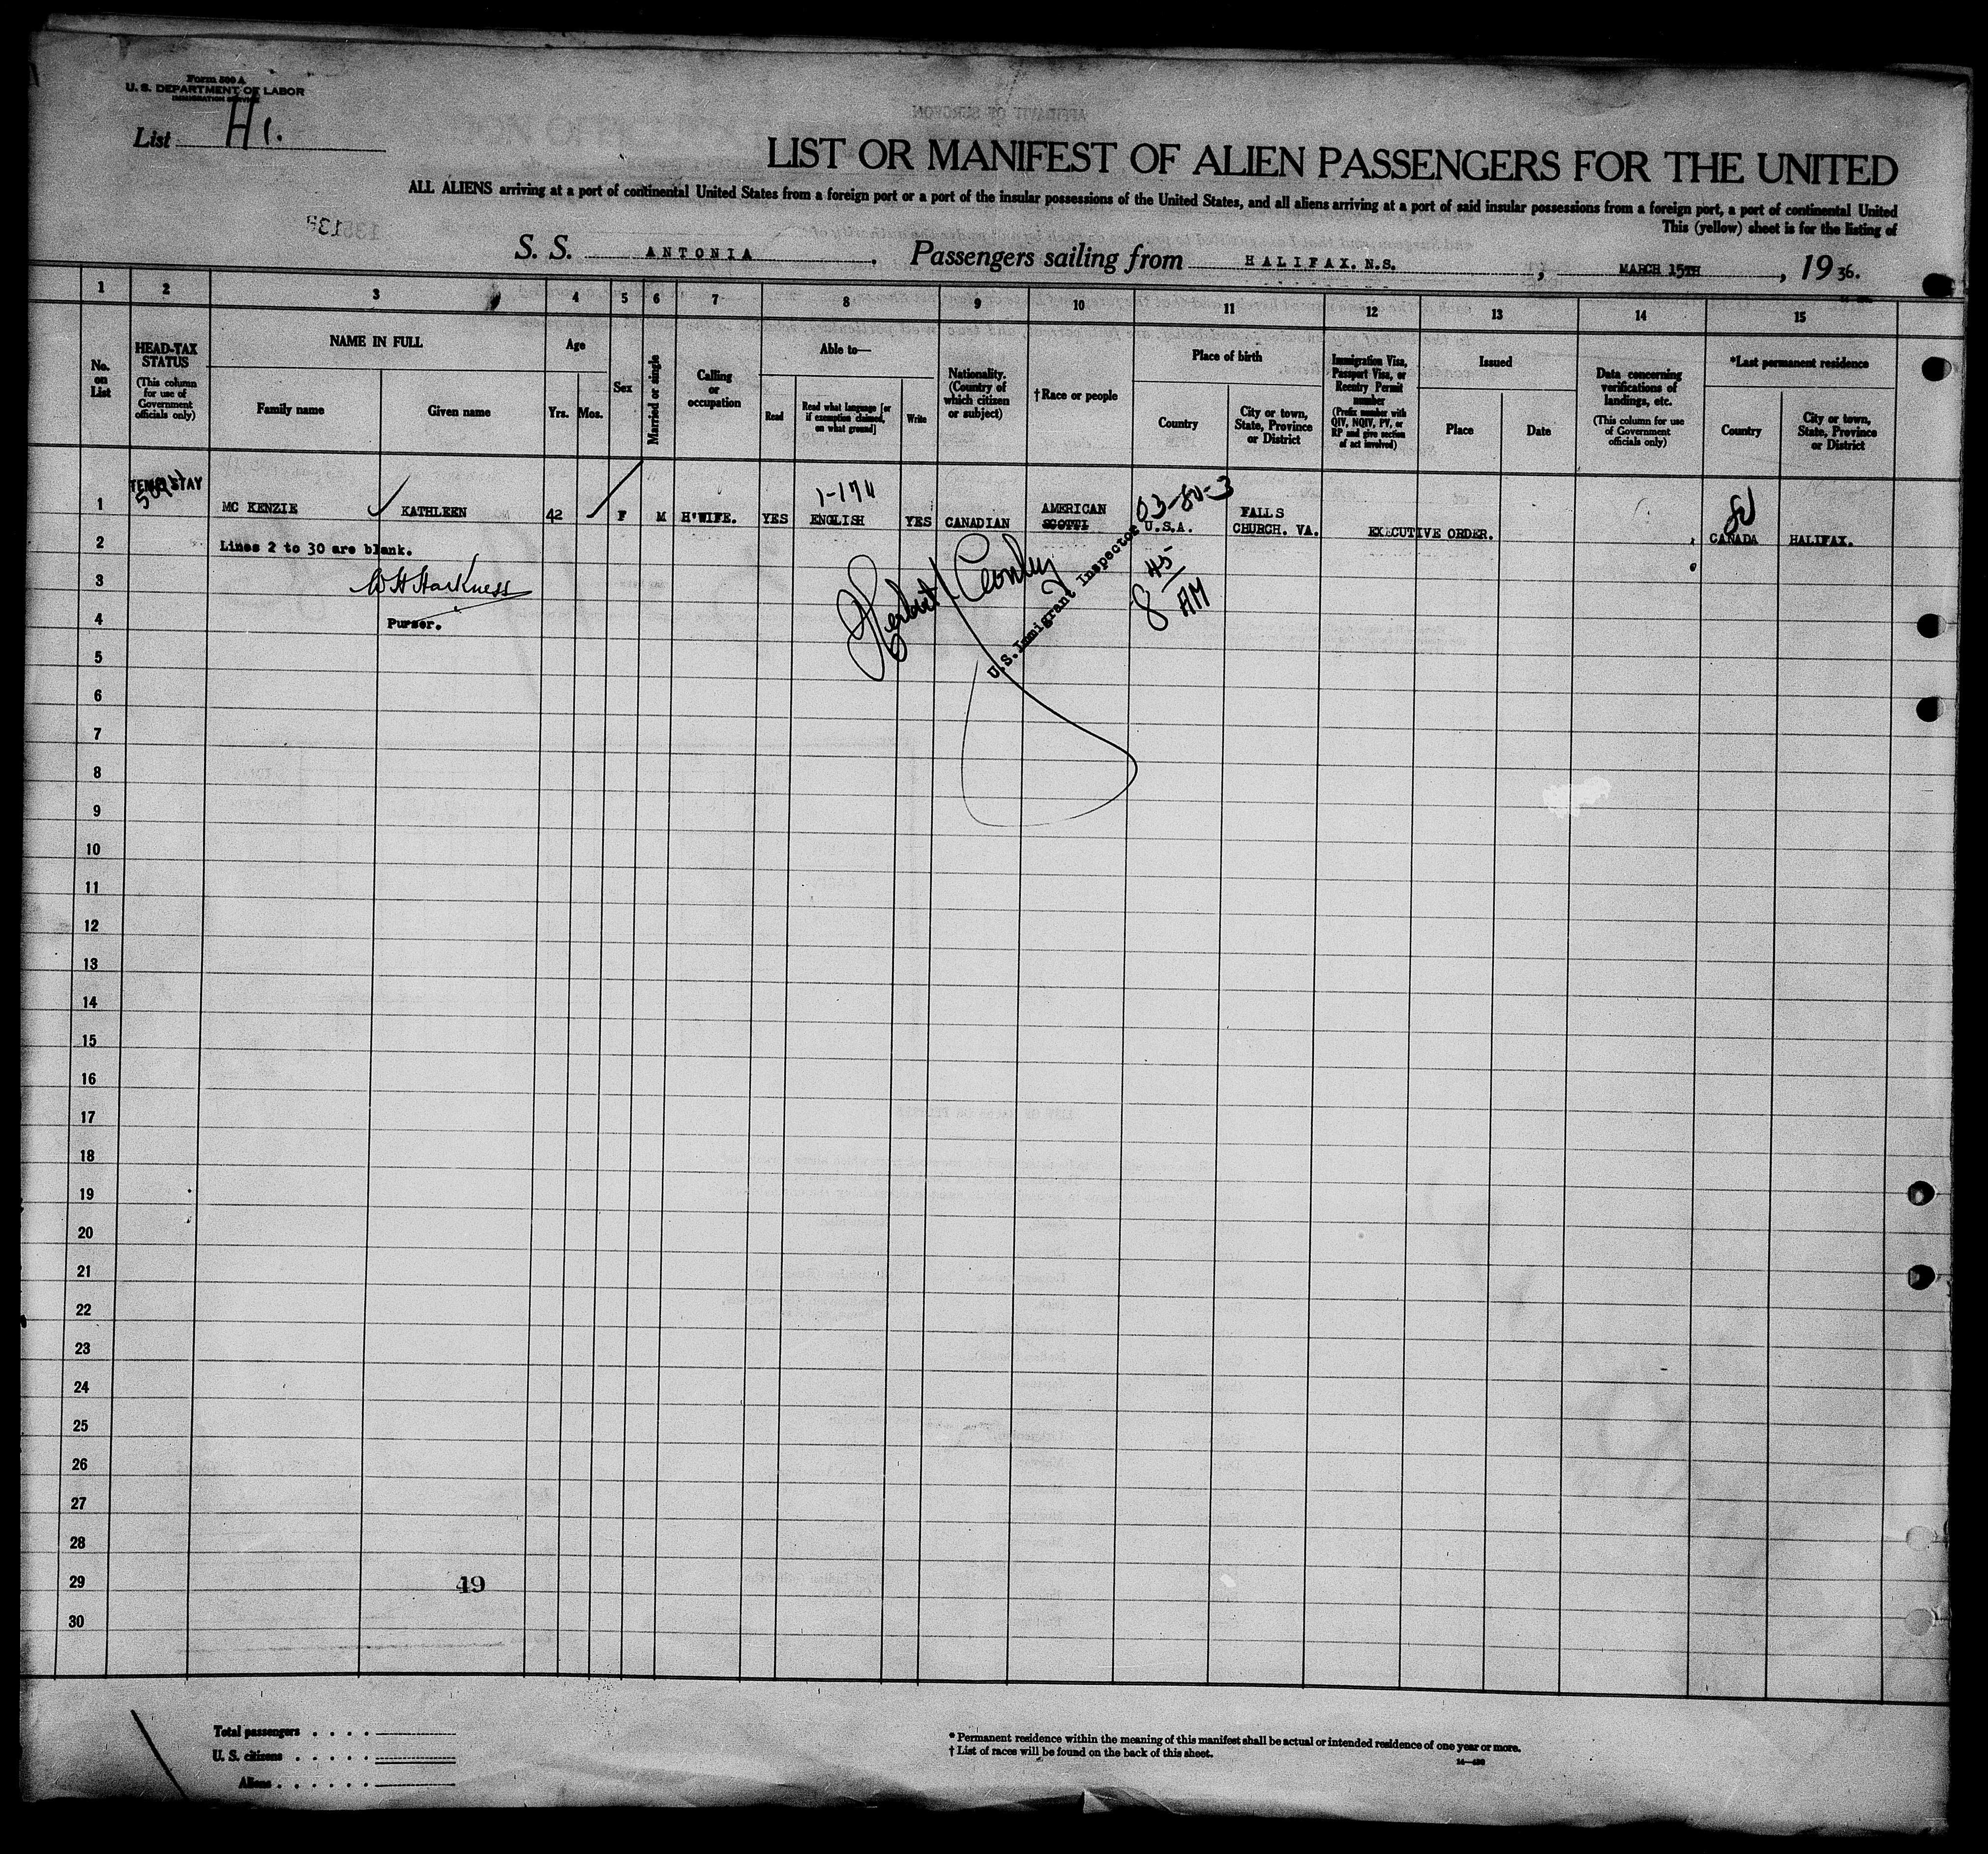 Form 500 A
U. S. DEPARTMENT OF LABOR
IMMIGRATION SERVICE
List H1.
LIST OR MANIFEST OF ALIEN PASSENGERS FOR THE UNITED
ALL ALIENS arriving at a port of continental United States from a foreign port or a port of the insular possessions of the United States, and all aliens arriving at a port of said insular possessions from a foreign port, a port of continental United
This (yellow) sheet is for the listing of
S. S. ANTONIA. Passengers sailing from HALIFAX. N.S., MARCH 15TH, 1936.
1 2 3 4 5 6 7 8 9 10 11 12 13 14 15
No. on List
HEAD-TAX STATUS
(This column for use of Government officials only)
NAME IN FULL
Family name
Given name
Age
Yrs. Mos.
Sex
Married or single
Calling or occupation
Able to—
Read
Read what language [or if exemption claimed, on what ground]
Write
Nationality. (Country of which citizen or subject)
† Race or people
Place of birth
Country
City or town, State, Province or District
Immigration Visa, Passport Visa, or Reentry Permit number
(Prefix number with QIV, NQIV, PV, or RP and give section of act involved)
Issued
Place
Date
Data concerning verifications of landings, etc.
(This column for use of Government officials only)
*Last permanent residence
Country
City or town, State, Province or District
TEMP STAY
1-174
03-80-3
1 MC KENZIE KATHLEEN 42 F M H'WIFE. YES ENGLISH YES CANADIAN AMERICAN SCOTTI U.S.A. FALLS CHURCH. VA. EXECUTIVE ORDER. CANADA HALIFAX.
2 Lines 2 to 30 are blank.
3 W H Harkness
4 Purser.
U.S. Immigrant Inspector
8 45 AM
5
6
7
8
9
10
11
12
13
14
15
16
17
18
19
20
21
22
23
24
25
26
27
28
29 49
30
Total passengers . . . .
U. S. citizens . . . . .
Aliens . . . . . .
* Permanent residence within the meaning of this manifest shall be actual or intended residence of one year or more.
† List of races will be found on the back of this sheet.